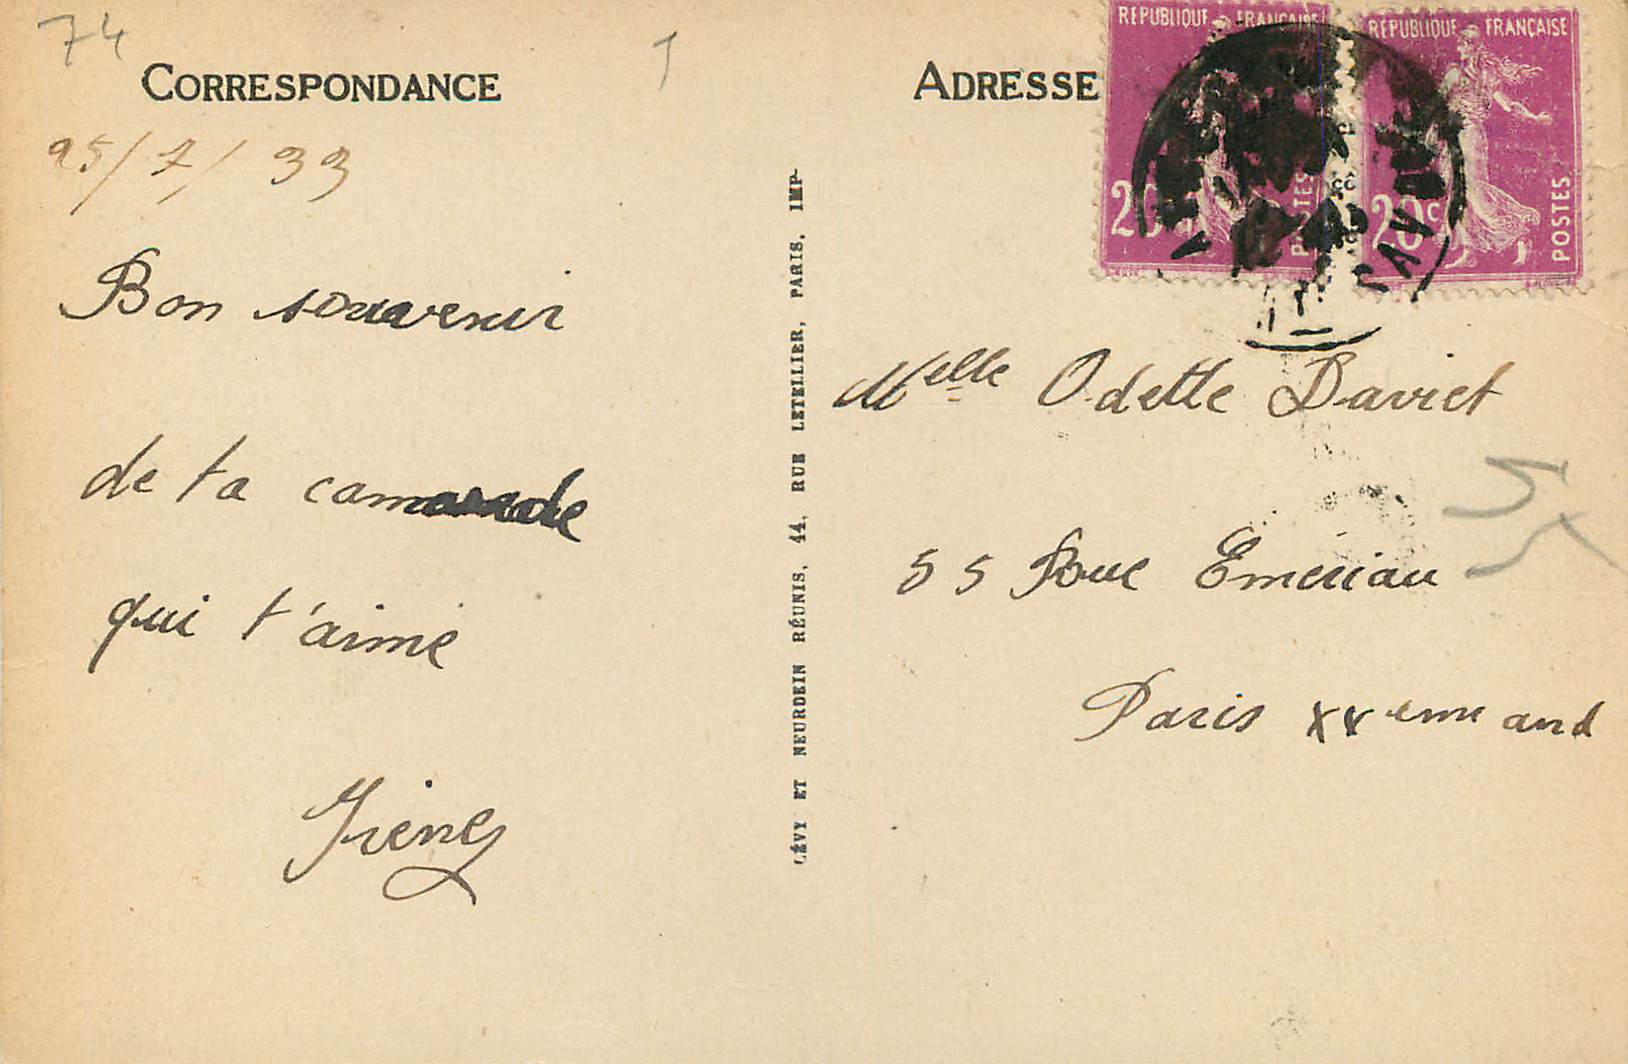 74
CORRESPONDANCE
25/7/33
Bon souvenir
de ta camarade
qui t'aime
Irène
LÉVY ET NEURDEIN RÉUNIS, 44, RUE LETELLIER, PARIS, IMP.
ADRESSE
RÉPUBLIQUE FRANÇAISE
20c
POSTES
RÉPUBLIQUE FRANÇAISE
20c
POSTES
SAVOIE
Melle Odette Daviet
55 Rue Emeriau
Paris XVeme arrd